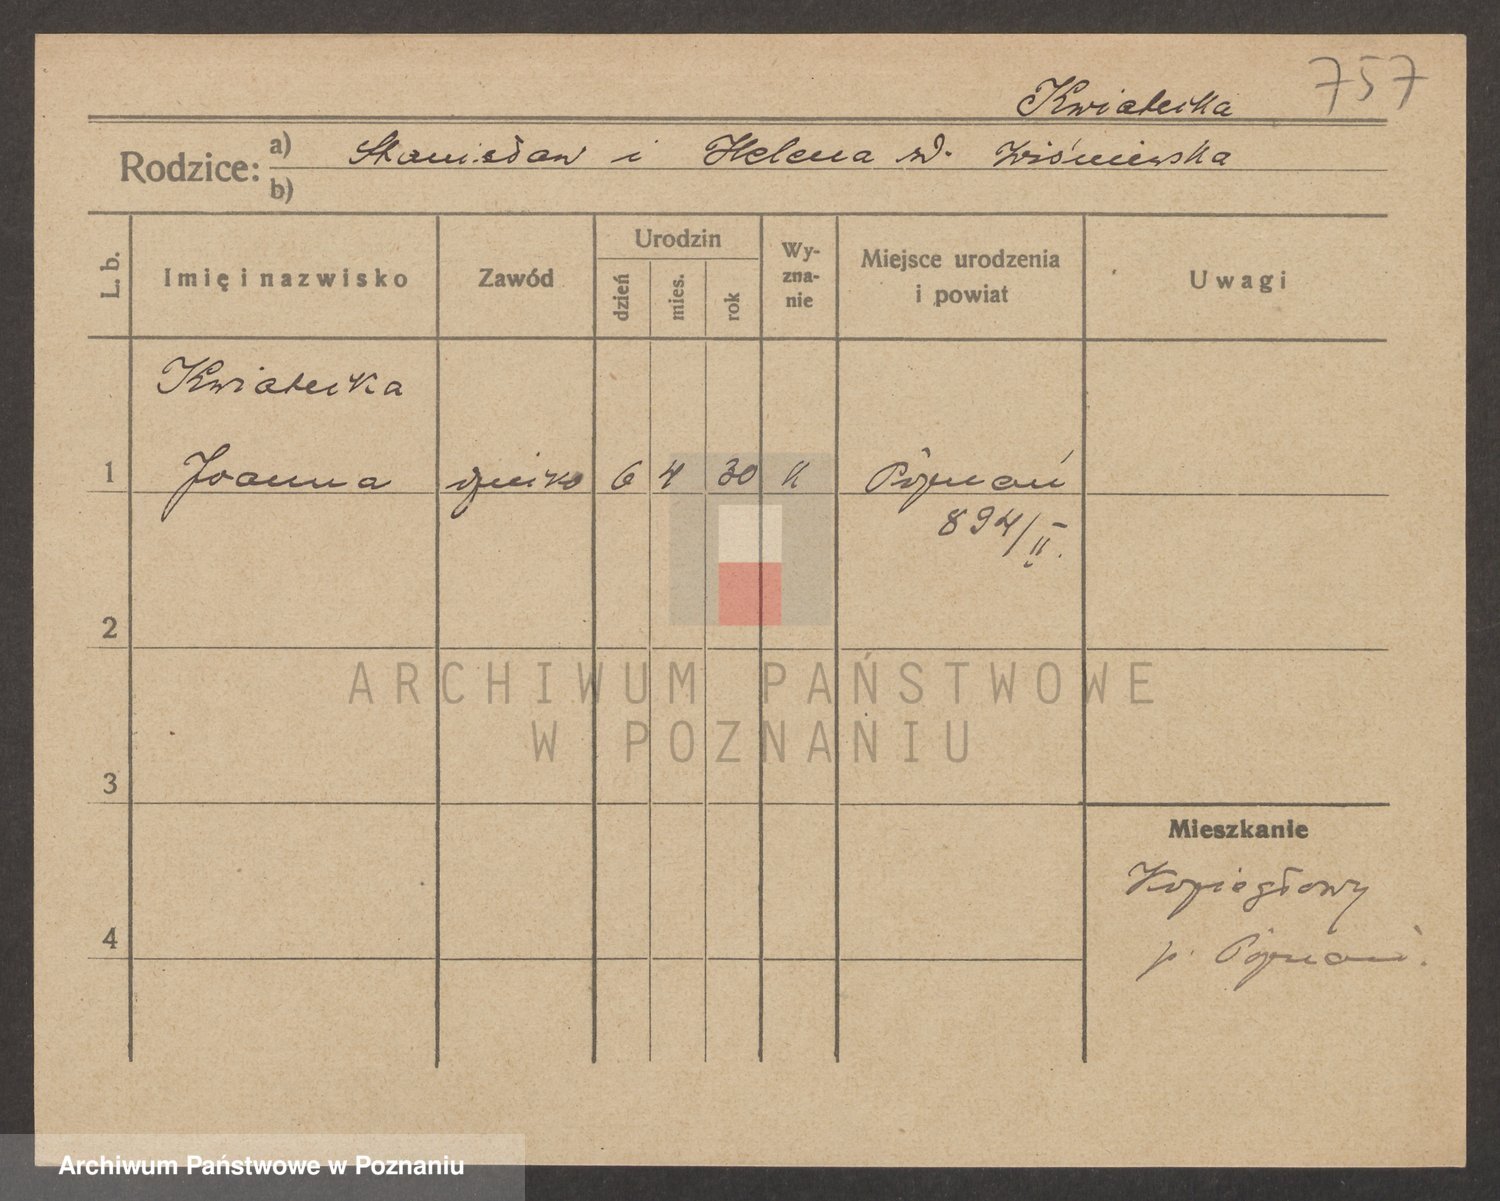 757
Kwiatecka
Rodzice: a) Stanisław i Helena zd. Wiśniewska
b)
L. b. Imię i nazwisko Zawód Urodzin dzień mies. rok Wyznanie Miejsce urodzenia i powiat Uwagi
Kwiatecka
1 Joanna dziecko 6 4 30 k Poznań
894/II.
2
3
Mieszkanie
Koziegłowy
4
p. Poznań.
ARCHIWUM PAŃSTWOWE
W POZNANIU
Archiwum Państwowe w Poznaniu